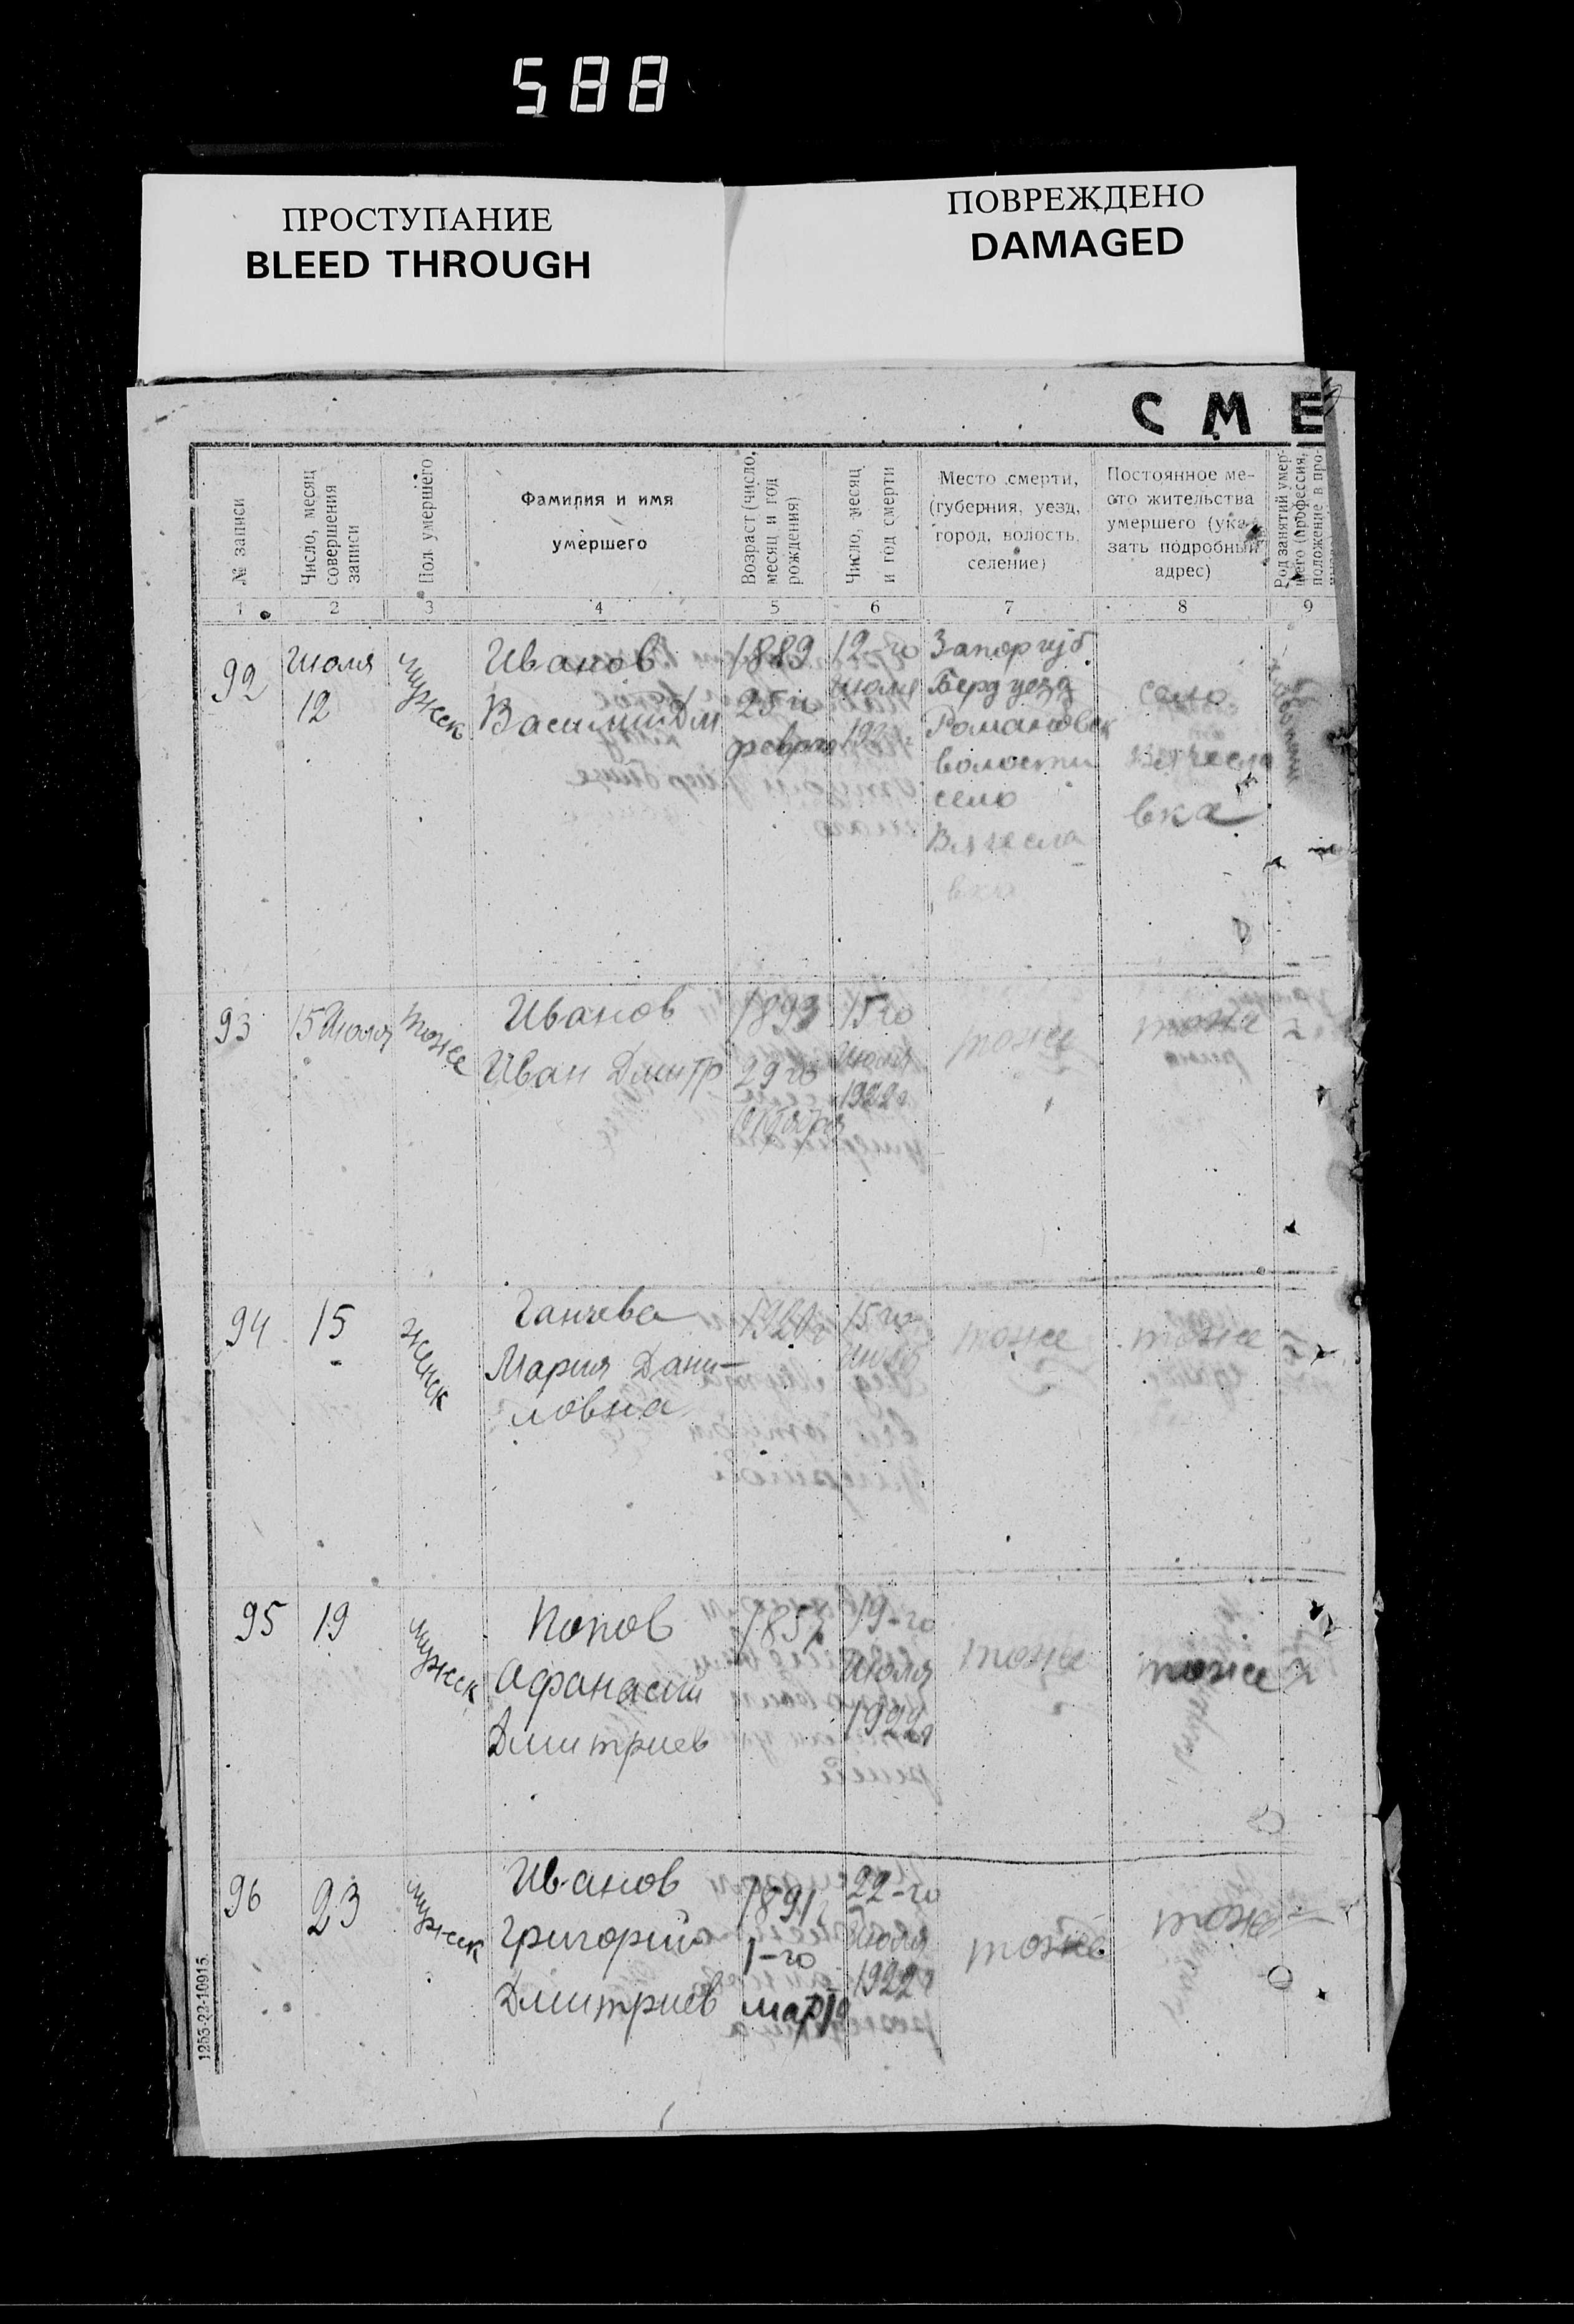 588
ПРОСТУПАНИЕ
BLEED THROUGH
ПОВРЕЖДЕНО
DAMAGED
СМЕ
№ записи
Число, месяц
совершения
записи
Пол умершего
Фамилия и имя
умершего
Возраст (число,
месяц и год
рождения)
Число, месяц
и год смерти
Место смерти,
(губерния, уезд,
город, волость,
селение)
Постоянное ме-
сто жительства
умершего (ука-
зать подробный
адрес)
Род занятий умер-
шего (профессия,
положение в про-
1 2 3 4 5 6 7 8 9
92
Июля
12
мужск
Иванов
Василий Дм
1889
25 го
феврал
12-го
Июля
192
Запор губ
Берд уезд
Романовск
волости
село
Вячесла
вка
село
Вячесла
вка
93
15 Июля
тоже
Иванов
Иван Дмитр
1893
29 го
октября
15 го
Июля
1922 г
тоже
тоже
94
15
женск
Ганчева
Мария Дани-
ловна
1920 г
15 го
тоже
тоже
95
19
мужск
Попов
Афанасий
Дмитриев
1857
19-го
Июля
1922 г
тоже
тоже
96
23
мужск
Иванов
Григорий
Дмитриев
1891
1-го
марта
22-го
Июля
1922 г
тоже
тоже
1255-22-10915